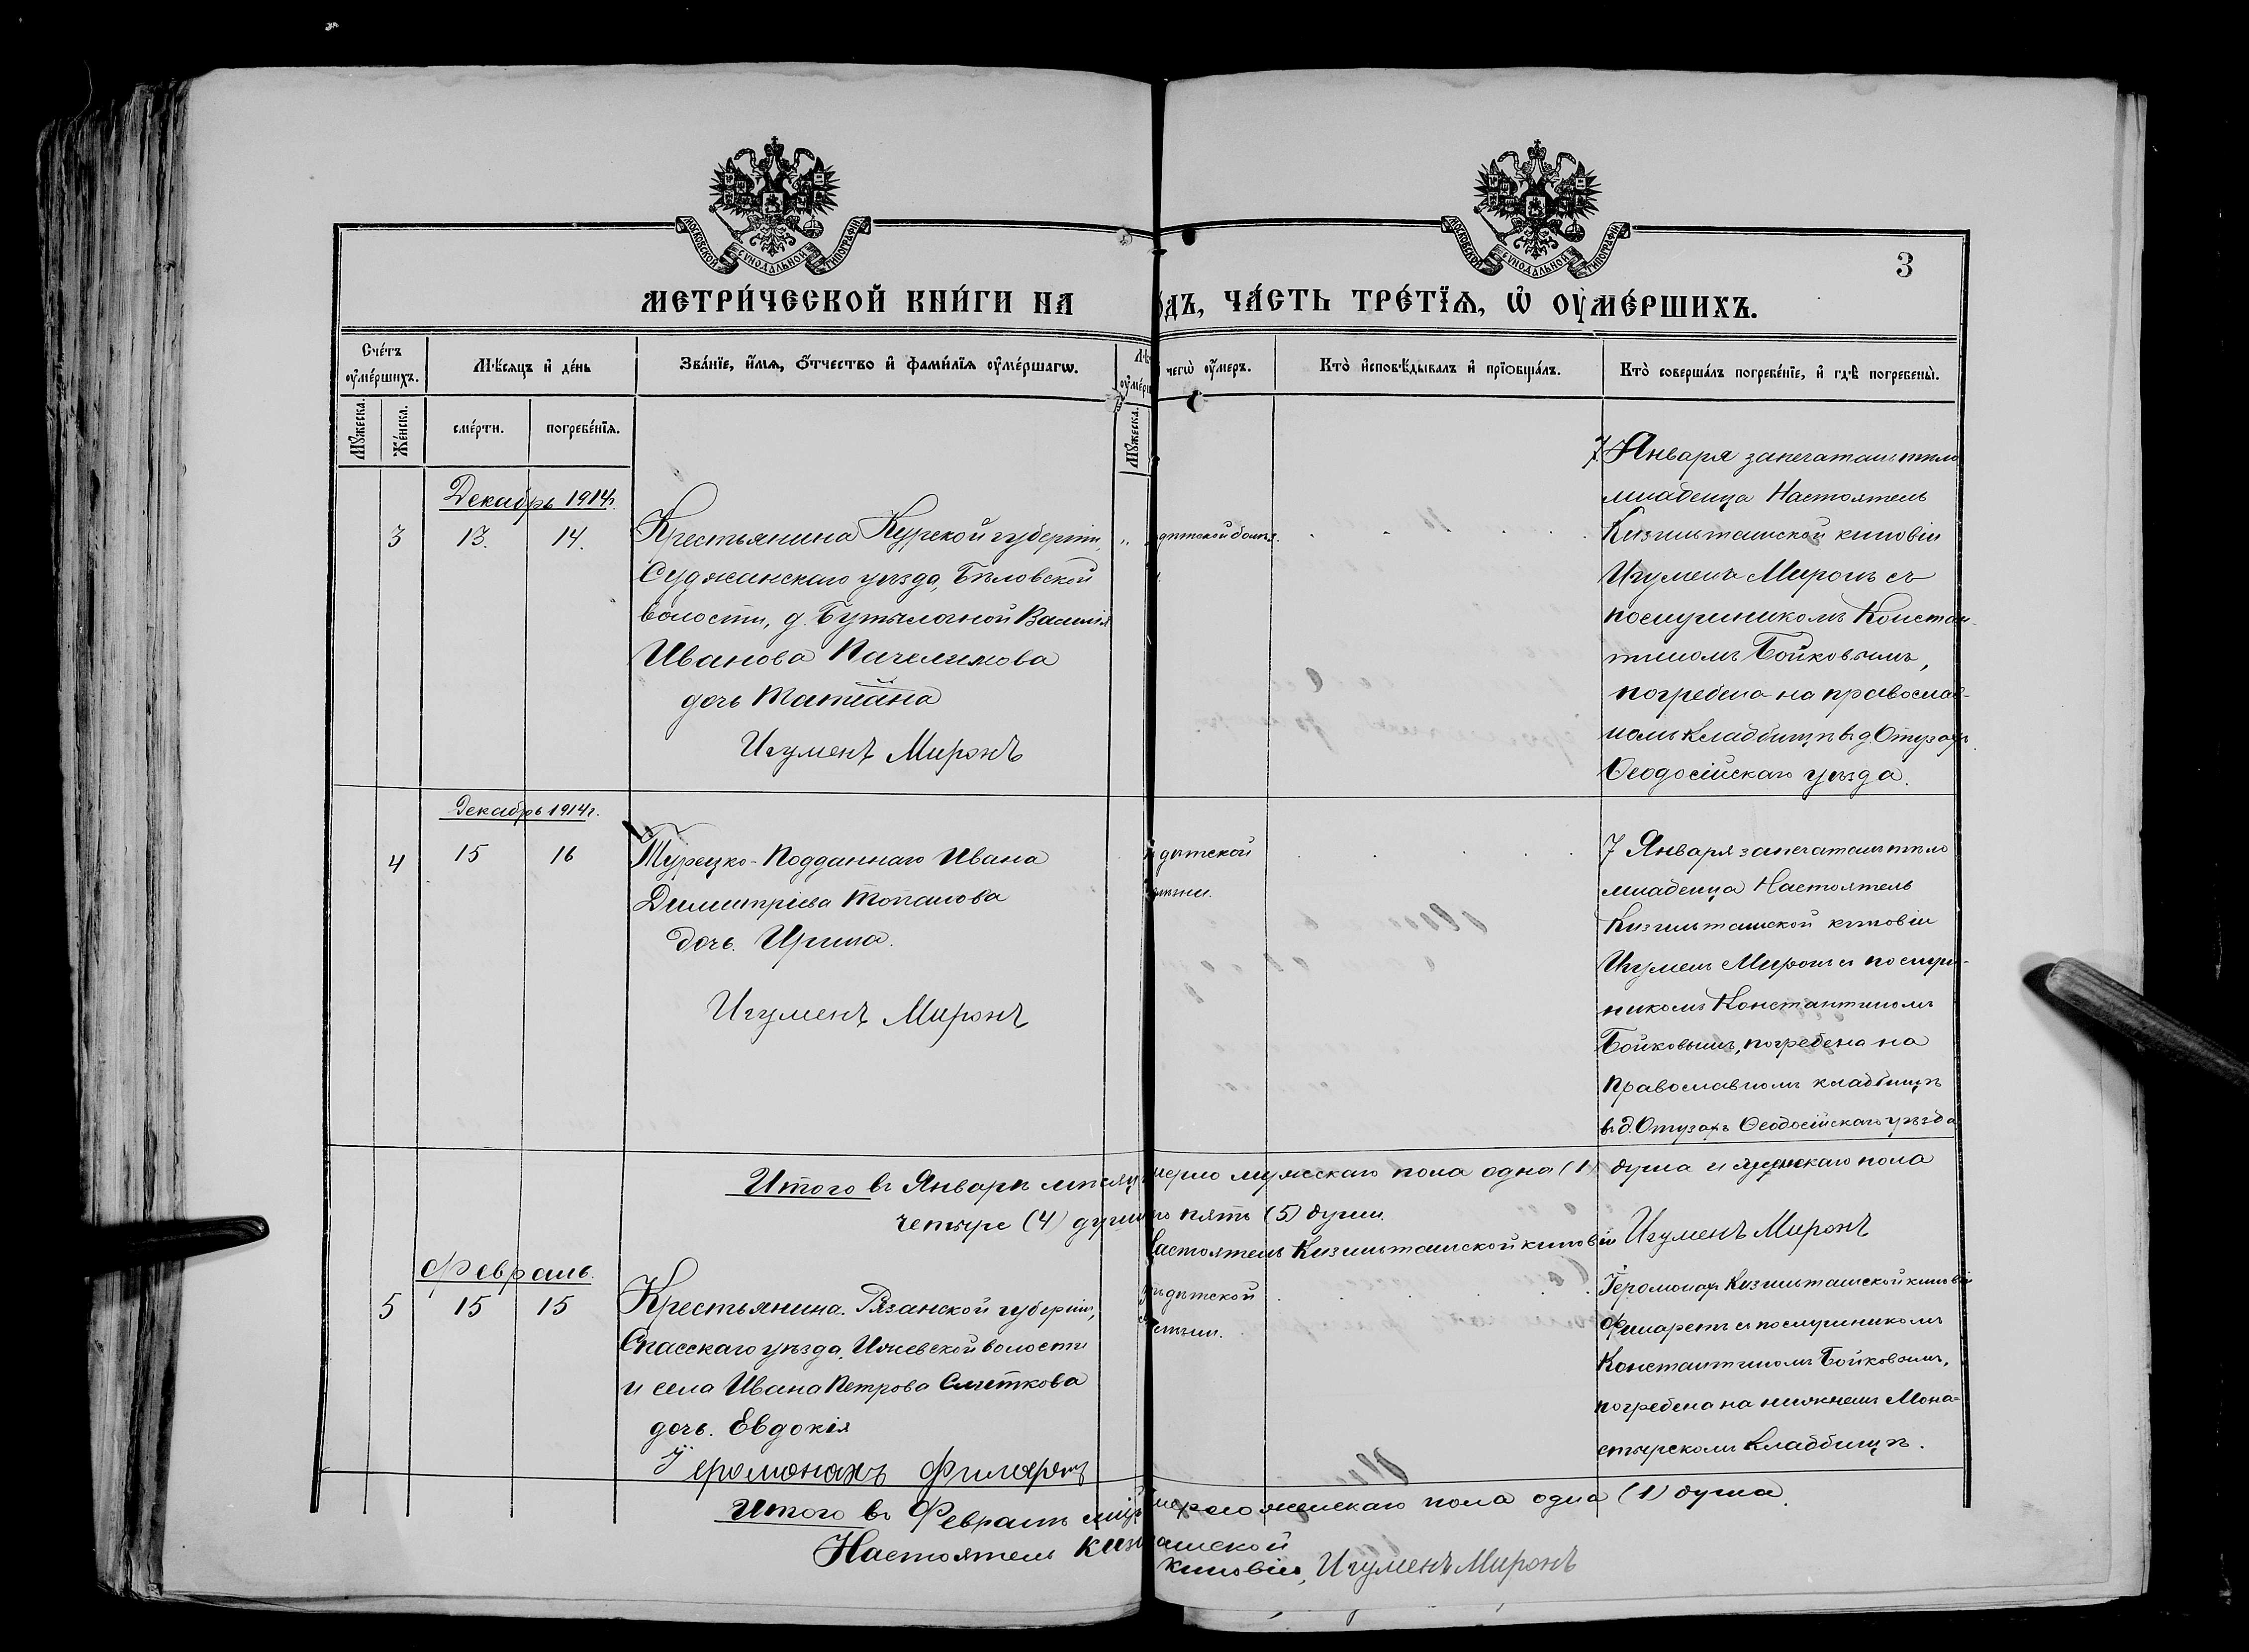 МОСКОВСКОЙ СУНОДАЛЬНОЙ ТИПОГРАФІИ
МОСКОВСКОЙ СУНОДАЛЬНОЙ ТИПОГРАФІИ
3
МЕТРИ́ЧЕСКОЙ КНИ́ГИ НА
ОДЪ, ЧА́СТЬ ТРЕ́ТЇѦ, Ѡ҆ ОУМЕ́РШИХЪ.
Сче́тъ оу҆ме́ршихъ.
Мѣ́сяцъ и҆ де́нь
Зва́нїе, и҆́мѧ, ѻ҆́тчество и҆ фами́лїѧ оу҆ме́ршагѡ.
чегѡ̀ оу҆́меръ.
Кто̀ и҆сповѣ́дывалъ и҆ прїѡбща́лъ.
Кто̀ соверша́лъ погребе́нїе, и҆ гдѣ̀ погребены̀.
Мꙋ́жеска.
Же́нска.
сме́рти.
погребе́нїѧ.
Мꙋ́жеска.
Декабрь 1914г.
3
13.
14.
Крестьянина Курской губерніи,
Суджанскаго уѣзда, Бѣловской
волости, д. Бутылочной Василія
Иванова
дочь Татіана
Игуменъ Миронъ
дѣтской болѣз.
7 Января запечаталъ тѣло
младенца Настоятель
Кизильташской киновіи
Игуменъ Миронъ съ
послушникомъ Констан-
тиномъ Бойковымъ,
погребена на православ-
номъ кладбищѣ въ д. Отузахъ
Ѳеодосійскаго уѣзда.
Декабрь 1914г.
4
15
16
Турецко-Подданнаго Ивана
Димитріева Топалова
дочь. Ирина.
Игуменъ Миронъ
дѣтской
лѣзни.
7 Января запечаталъ тѣло
младенца Настоятель
Кизильташской киновіи
Игуменъ Миронъ съ послуш-
никомъ Константиномъ
Бойковымъ, погребена на
православномъ кладбищѣ
въ д. Отузахъ Ѳеодосійскаго уѣзда
Итого въ Январѣ мѣсяц мерло мужскаго пола одна (1) душа и женскаго пола
четыре (4) душ го пять (5) душъ.
Настоятель Кизильташской киновіи Игуменъ Миронъ
Февраль.
5
15
15
Крестьянина Рязанской губерніи,
Спасскаго уѣзда, Ижевской волости
и села Ивана Петрова
дочь. Евдокія
Іеромонахъ Филаретъ
дѣтской
лѣзни.
Іеромонахъ Кизильташской киновіи
Филаретъ съ послушникомъ
Константиномъ Бойковымъ,
погребена на нижнемъ Мона-
стырскомъ кладбищѣ.
Итого въ Февралѣ мѣс мерло женскаго пола одна (1) душа.
Настоятель Кизи ашской
киновіи, Игуменъ Миронъ